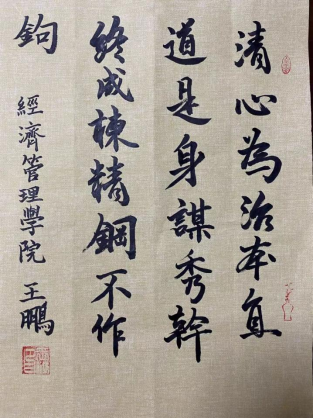 清心為治本直
道是身謀秀幹
終成棟精鋼不作
鉤
經濟管理學院 王鵬